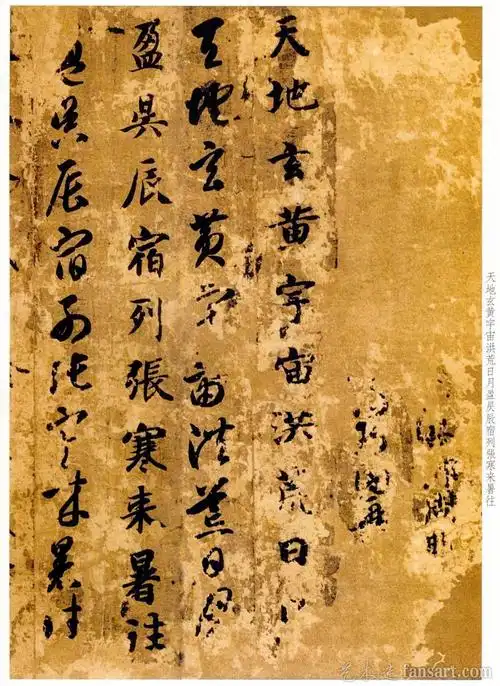 天地玄黄宇宙洪荒日月盈昃辰宿列張寒来暑往
天地玄黄宇宙洪荒日
天地玄黄宇宙洪荒日月
盈昃辰宿列張寒来暑往
盈昃辰宿列張寒来暑往
fansart.com